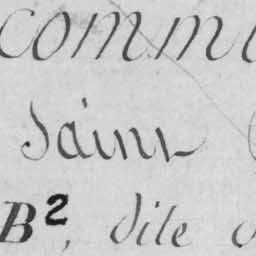 comm
Saint
B², dite